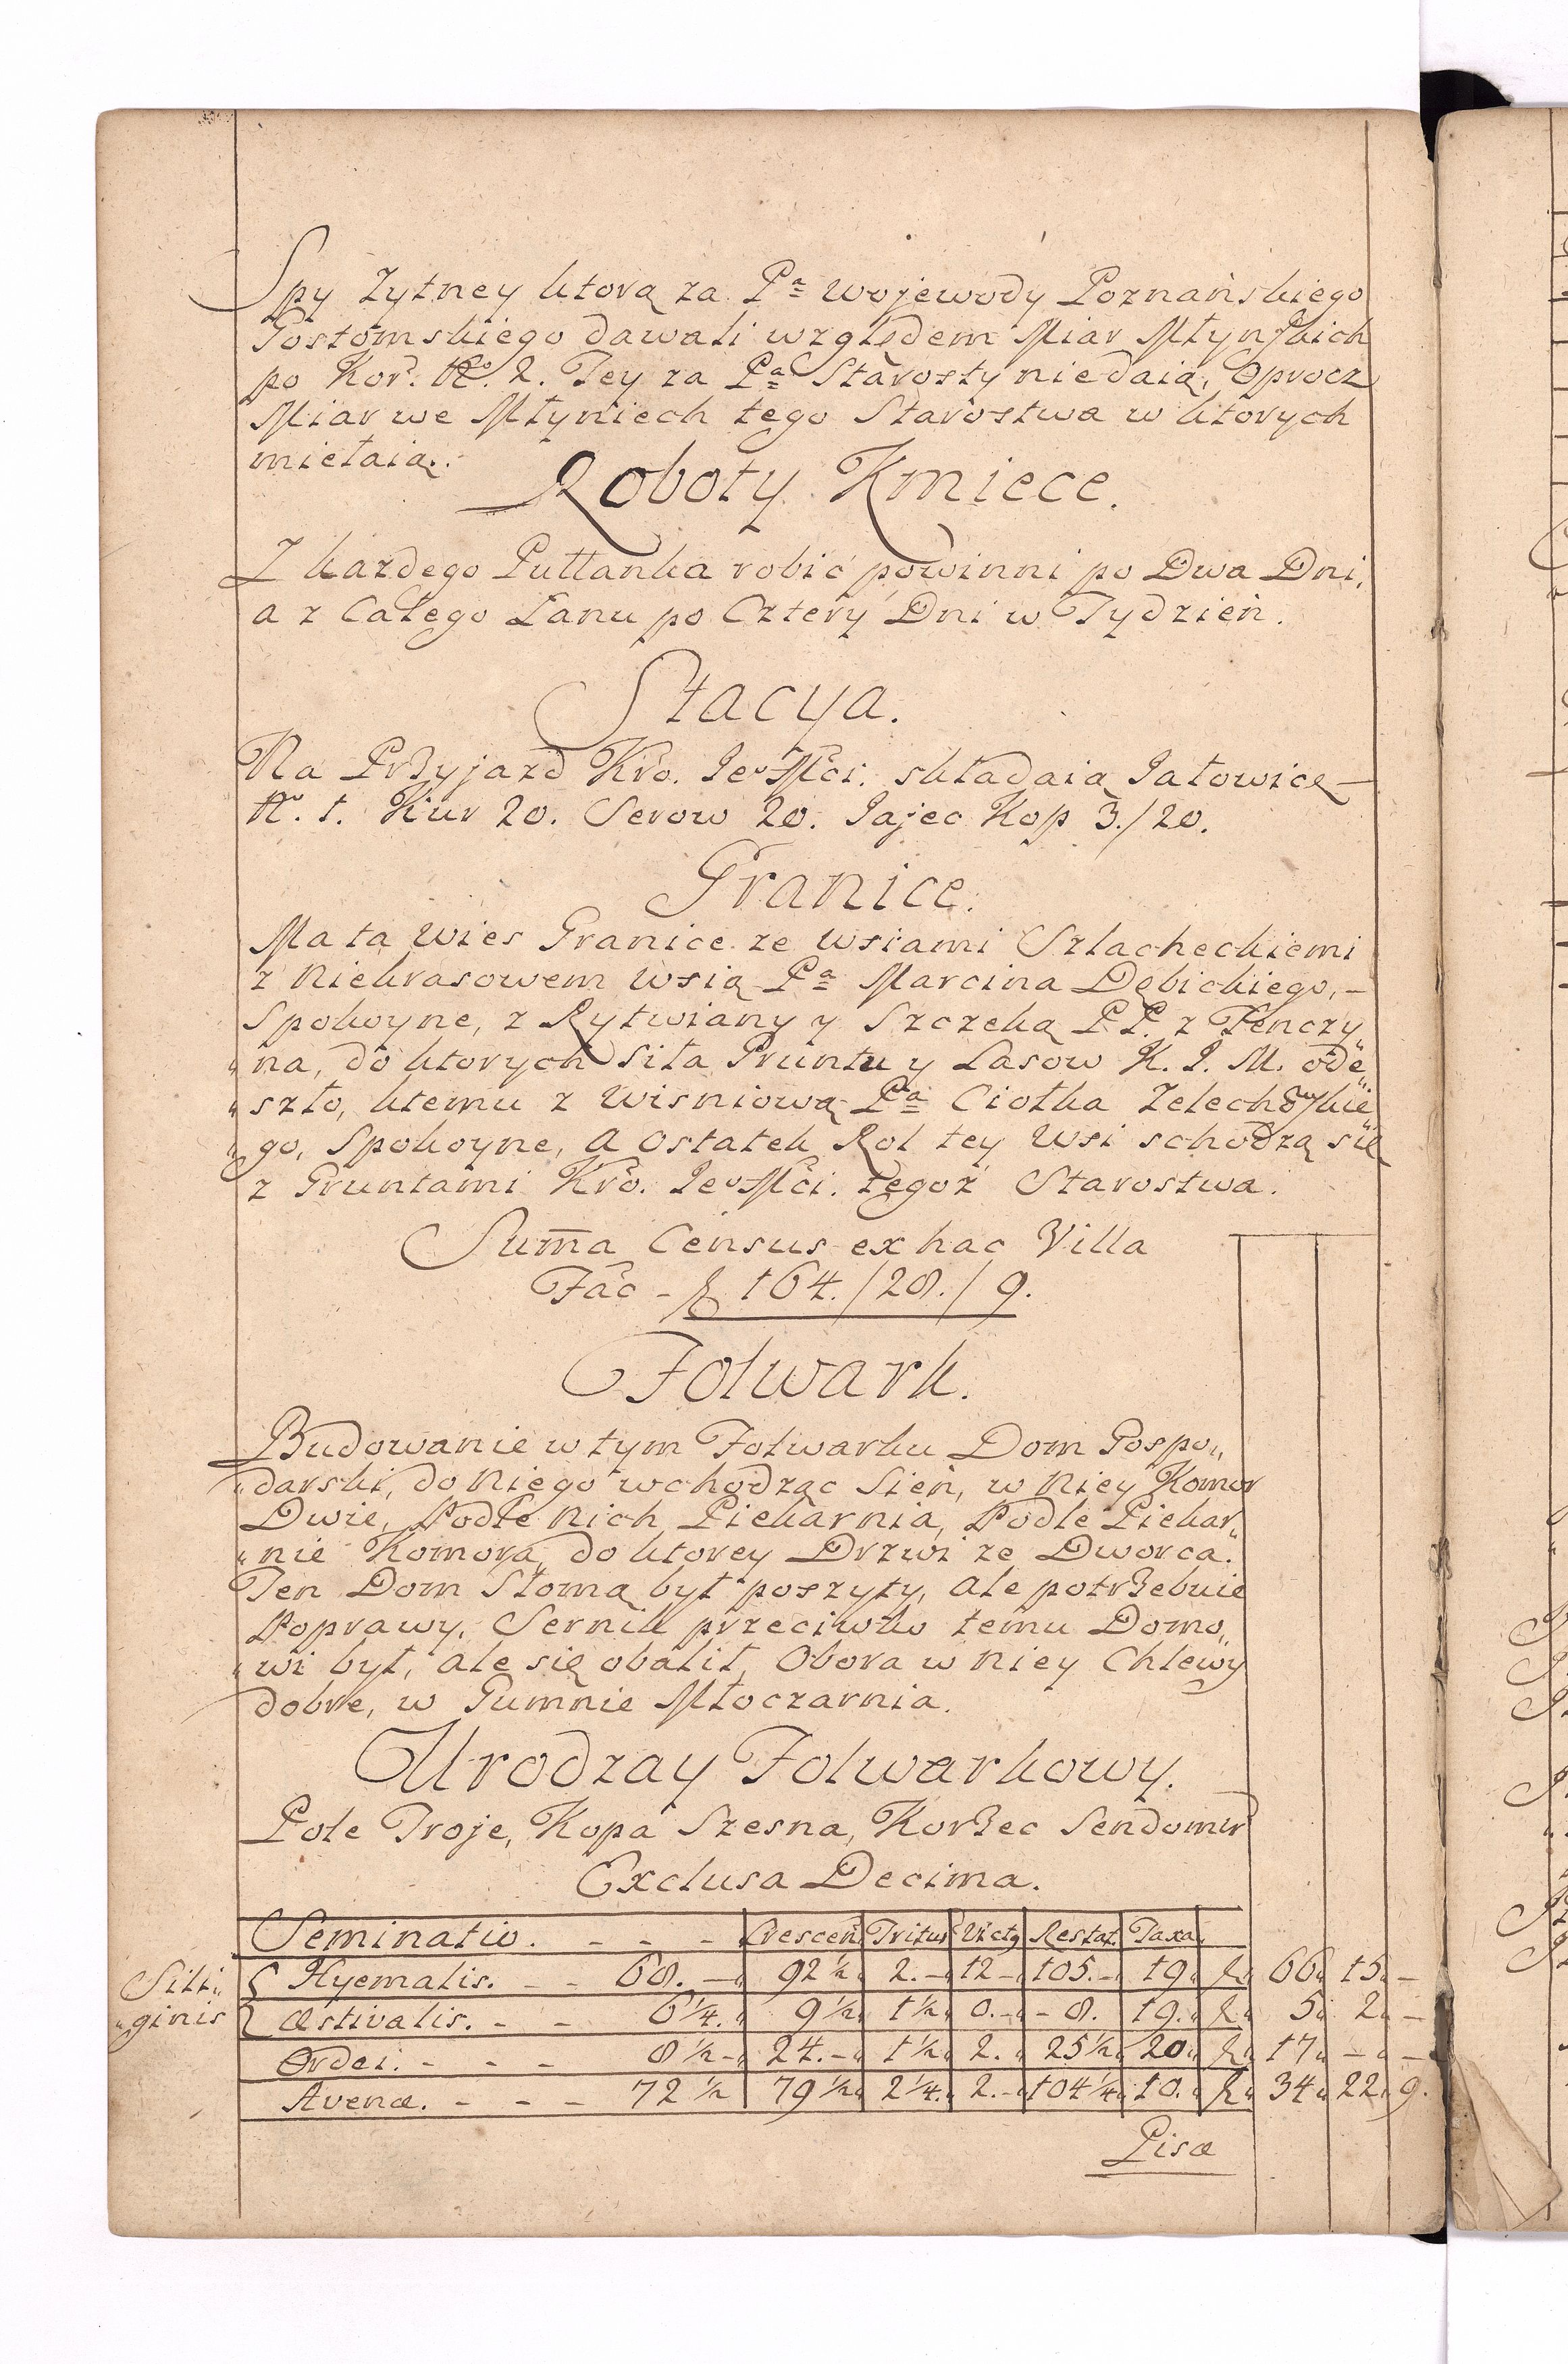 Spy Zytney ktorą za Pª Wojewody Poznańskiego
Gostomskiego dawali względem Miar Młynskich
po Kor. No. 2. Tey za Pª Starosty nie daią, Oprocz
Miar we Młyniech tego Starostwa w ktorych
mielaią.
Roboty Kmiece.
Z kazdego Pułłanka robić powinni po Dwa Dni,
a z Całego Łanu po Cztery Dni w Tydzień.
Stacya.
Na Przyjazd Kro. Jeo Mći. składaią Jałowicę –
No. 1. Kur 20. Serow 20. Jajec Kop 3./20.
Granice.
Ma ta Wies Granice ze Wsiami Szlacheckiemi
z Niekrasowem Wsią Pª Marcina Dębickiego, –
Spokoyne, z Rytwiany y Szczeką P.P. z Tenczy„
„na, do ktorych siła Gruntu y Lasow K. J. M. ode„
„szło, ktemu z Wisniową Pª Ciołka Zelechowskie„
„go, Spokoyne, a Ostatek Rol tey Wsi schodzą się
z Gruntami Kro. Jeo Mći. tegoz Starostwa.
Suma Census ex hac Villa
Fac – fl 164./28./9.
Folwark.
Budowanie w tym Folwarku Dom Gospo„
„darski, do Niego wchodząc Sień, w Niey Komor
Dwie, Podle Nich Piekarnia, Podle Piekar„
„nie Komora, do ktorey Drzwi ze Dworca.
Ten Dom Słomą był poszyty, ale potrzebuie
Poprawy, Sernik przeciwko temu Domo„
„wi był, ale się obalił, Obora w Niey Chlewy
dobre, w Gumnie Młoczarnia.
Urodzay Folwarkowy.
Pole Troje, Kopa Szesna, Korzec Sendomir
Exclusa Decima.
Seminatio. - - - Crescen Tritur Victg Restat. Taxa
Sili„ Hyemalis. - - 68. – 92 ½ 2. – 12 – 105. – 19 fl 66 15 –
„ginis Æstivalis. - - 6 ¼. 9 ½ 1 ½ 0. – – 8. 19. fl 5 2 –
Ordei. - - - 8 ½ – 24. – 1 ½ 2. 25 ½ 20 fl 17 – –
Avenæ. - - - 72 ½ 79 ½ 2 ¼. 2. – 104 ¼ 10. fl 34 22 9.
Pisæ